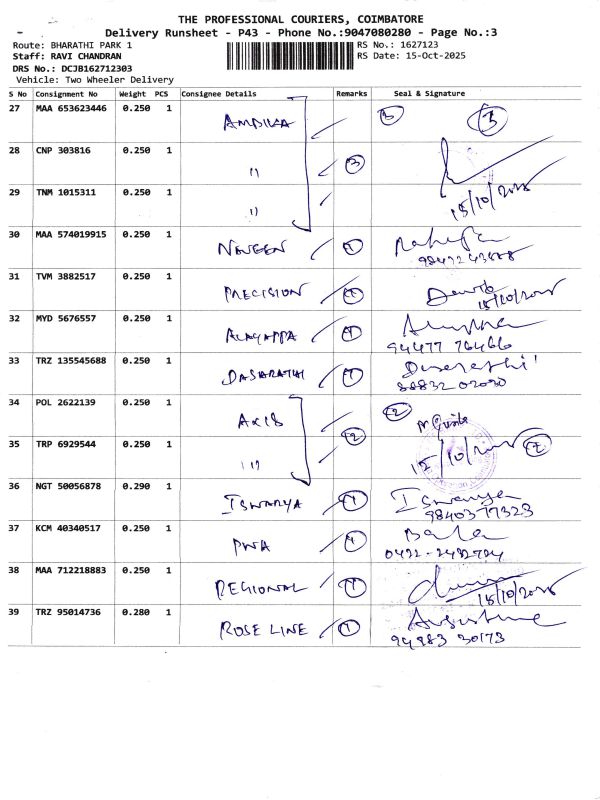 THE PROFESSIONAL COURIERS, COIMBATORE
Delivery Runsheet - P43 - Phone No.:9047080280 - Page No.:3
Route: BHARATHI PARK 1 RS No.: 1627123
Staff: RAVI CHANDRAN RS Date: 15-Oct-2025
DRS No.: DCJB162712303
Vehicle: Two Wheeler Delivery
S No Consignment No Weight PCS Consignee Details Remarks Seal & Signature
27 MAA 653623446 0.250 1 AMBIKA 3 3
28 CNP 303816 0.250 1 " 3
29 TNM 1015311 0.250 1 " 15/10/2025
30 MAA 574019915 0.250 1 NAVEEN 1
31 TVM 3882517 0.250 1 PRECISION 1 15/10/2025
32 MYD 5676557 0.250 1 ALAGAPPA 1
94477 76466
33 TRZ 135545688 0.250 1 DASARATHI 1 Dasarathi
88832 02030
34 POL 2622139 0.250 1 AXIS 2 2
35 TRP 6929544 0.250 1 " 15/10/2025 2
36 NGT 50056878 0.290 1 ISWARYA 1 Iswarya
98403 77323
37 KCM 40340517 0.250 1 PWA 1 Bala
0422-2492704
38 MAA 712218883 0.250 1 REGIONAL 1
15/10/2025
39 TRZ 95014736 0.280 1 ROSE LINE 1 Augustine
94983 30173